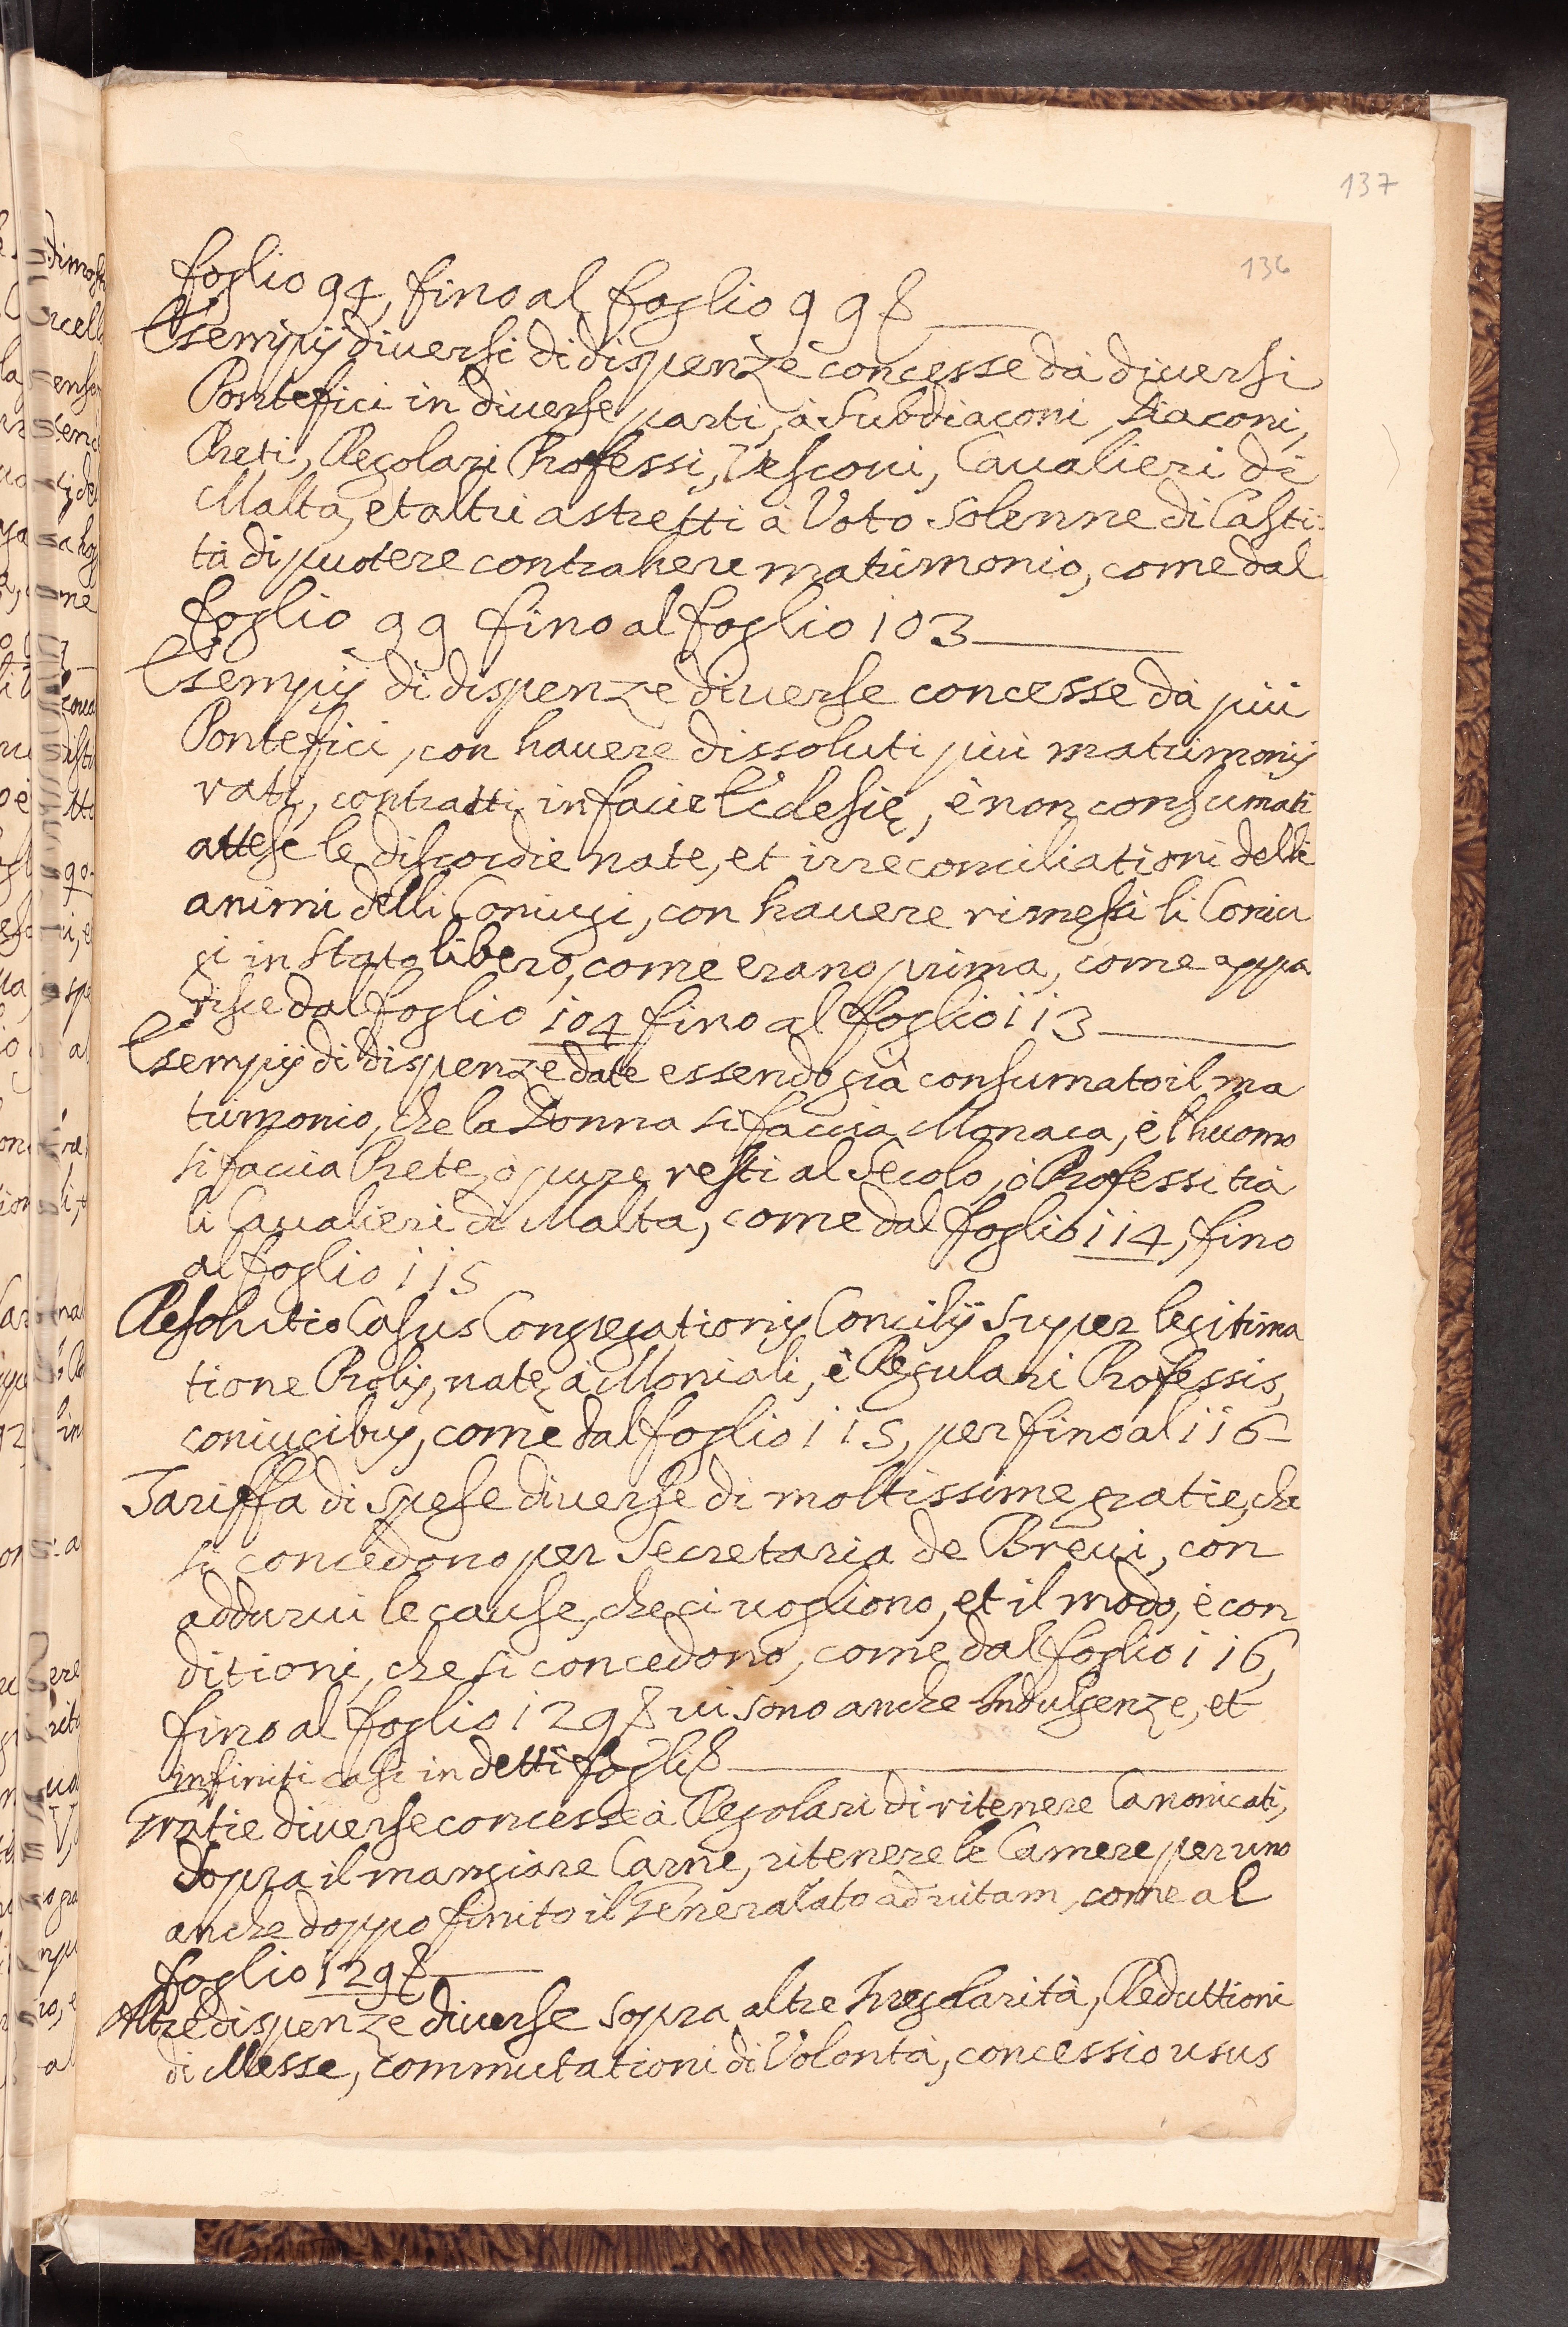 137
136
foglio 94, fino al foglio 99 8
Esempij diuersi di dispenze concesse dà diuersi
Pontefici in diuerse parti, à Subdiaconi, Diaconi,
Preti, Regolari Professi, Vesconi, Caualieri di
Malta, et altri astretti à Voto Solenne di Casti-
tà di puotere contrahere matrimonio, come dal
foglio 99 fino al foglio 103
Esempij di dispenze diuerse concesse dà più
Pontefici, con hauere dissoluti più matrimonij
rati, contratti in facie Ecclesię, è non consumati
attese le discordie nate, et irreconciliationi delli
animi delli Coniugi, con hauere rimessi li Coniu
gi in Stato libero, come erano prima, come appa
risce dal foglio 104 fino al foglio 113
Esempij di dispenze date essendo già consumato il ma
trimonio, che la Donna si faccia Monaca, è l'huomo
si faccia Prete, ò pure resti al Secolo, ò Professi trà
li Caualieri di Malta, come dal foglio 114, fino
al foglio 115
Resolutio Casus Congregationis Concilij super legitima
tione Prolis, natę à Moniali, è Regulari Professis,
coniugibus, come dal foglio 115, per fino al 116
Tariffa di spese diuerse di moltissime gratie, che
si concedono per Secretaria de Breui, con
addurui le cause, che ci uogliono, et il modo, è con
ditioni, che si concedono, come dal foglio 116,
fino al foglio 129 8 ui sono anche Indulgenze, et
infiniti casi in detti fogli 8
Gratie diuerse concesse à Regolari di ritenere Canonicati,
sopra il mangiare Carne, ritenere le Camere per uno
anche doppo finito il Generalato ad uitam, come al
foglio 129 8
Altre dispenze diuerse sopra altre Irregolarità, Reduttioni
di Messe, commutationi di Volontà, concessio usus